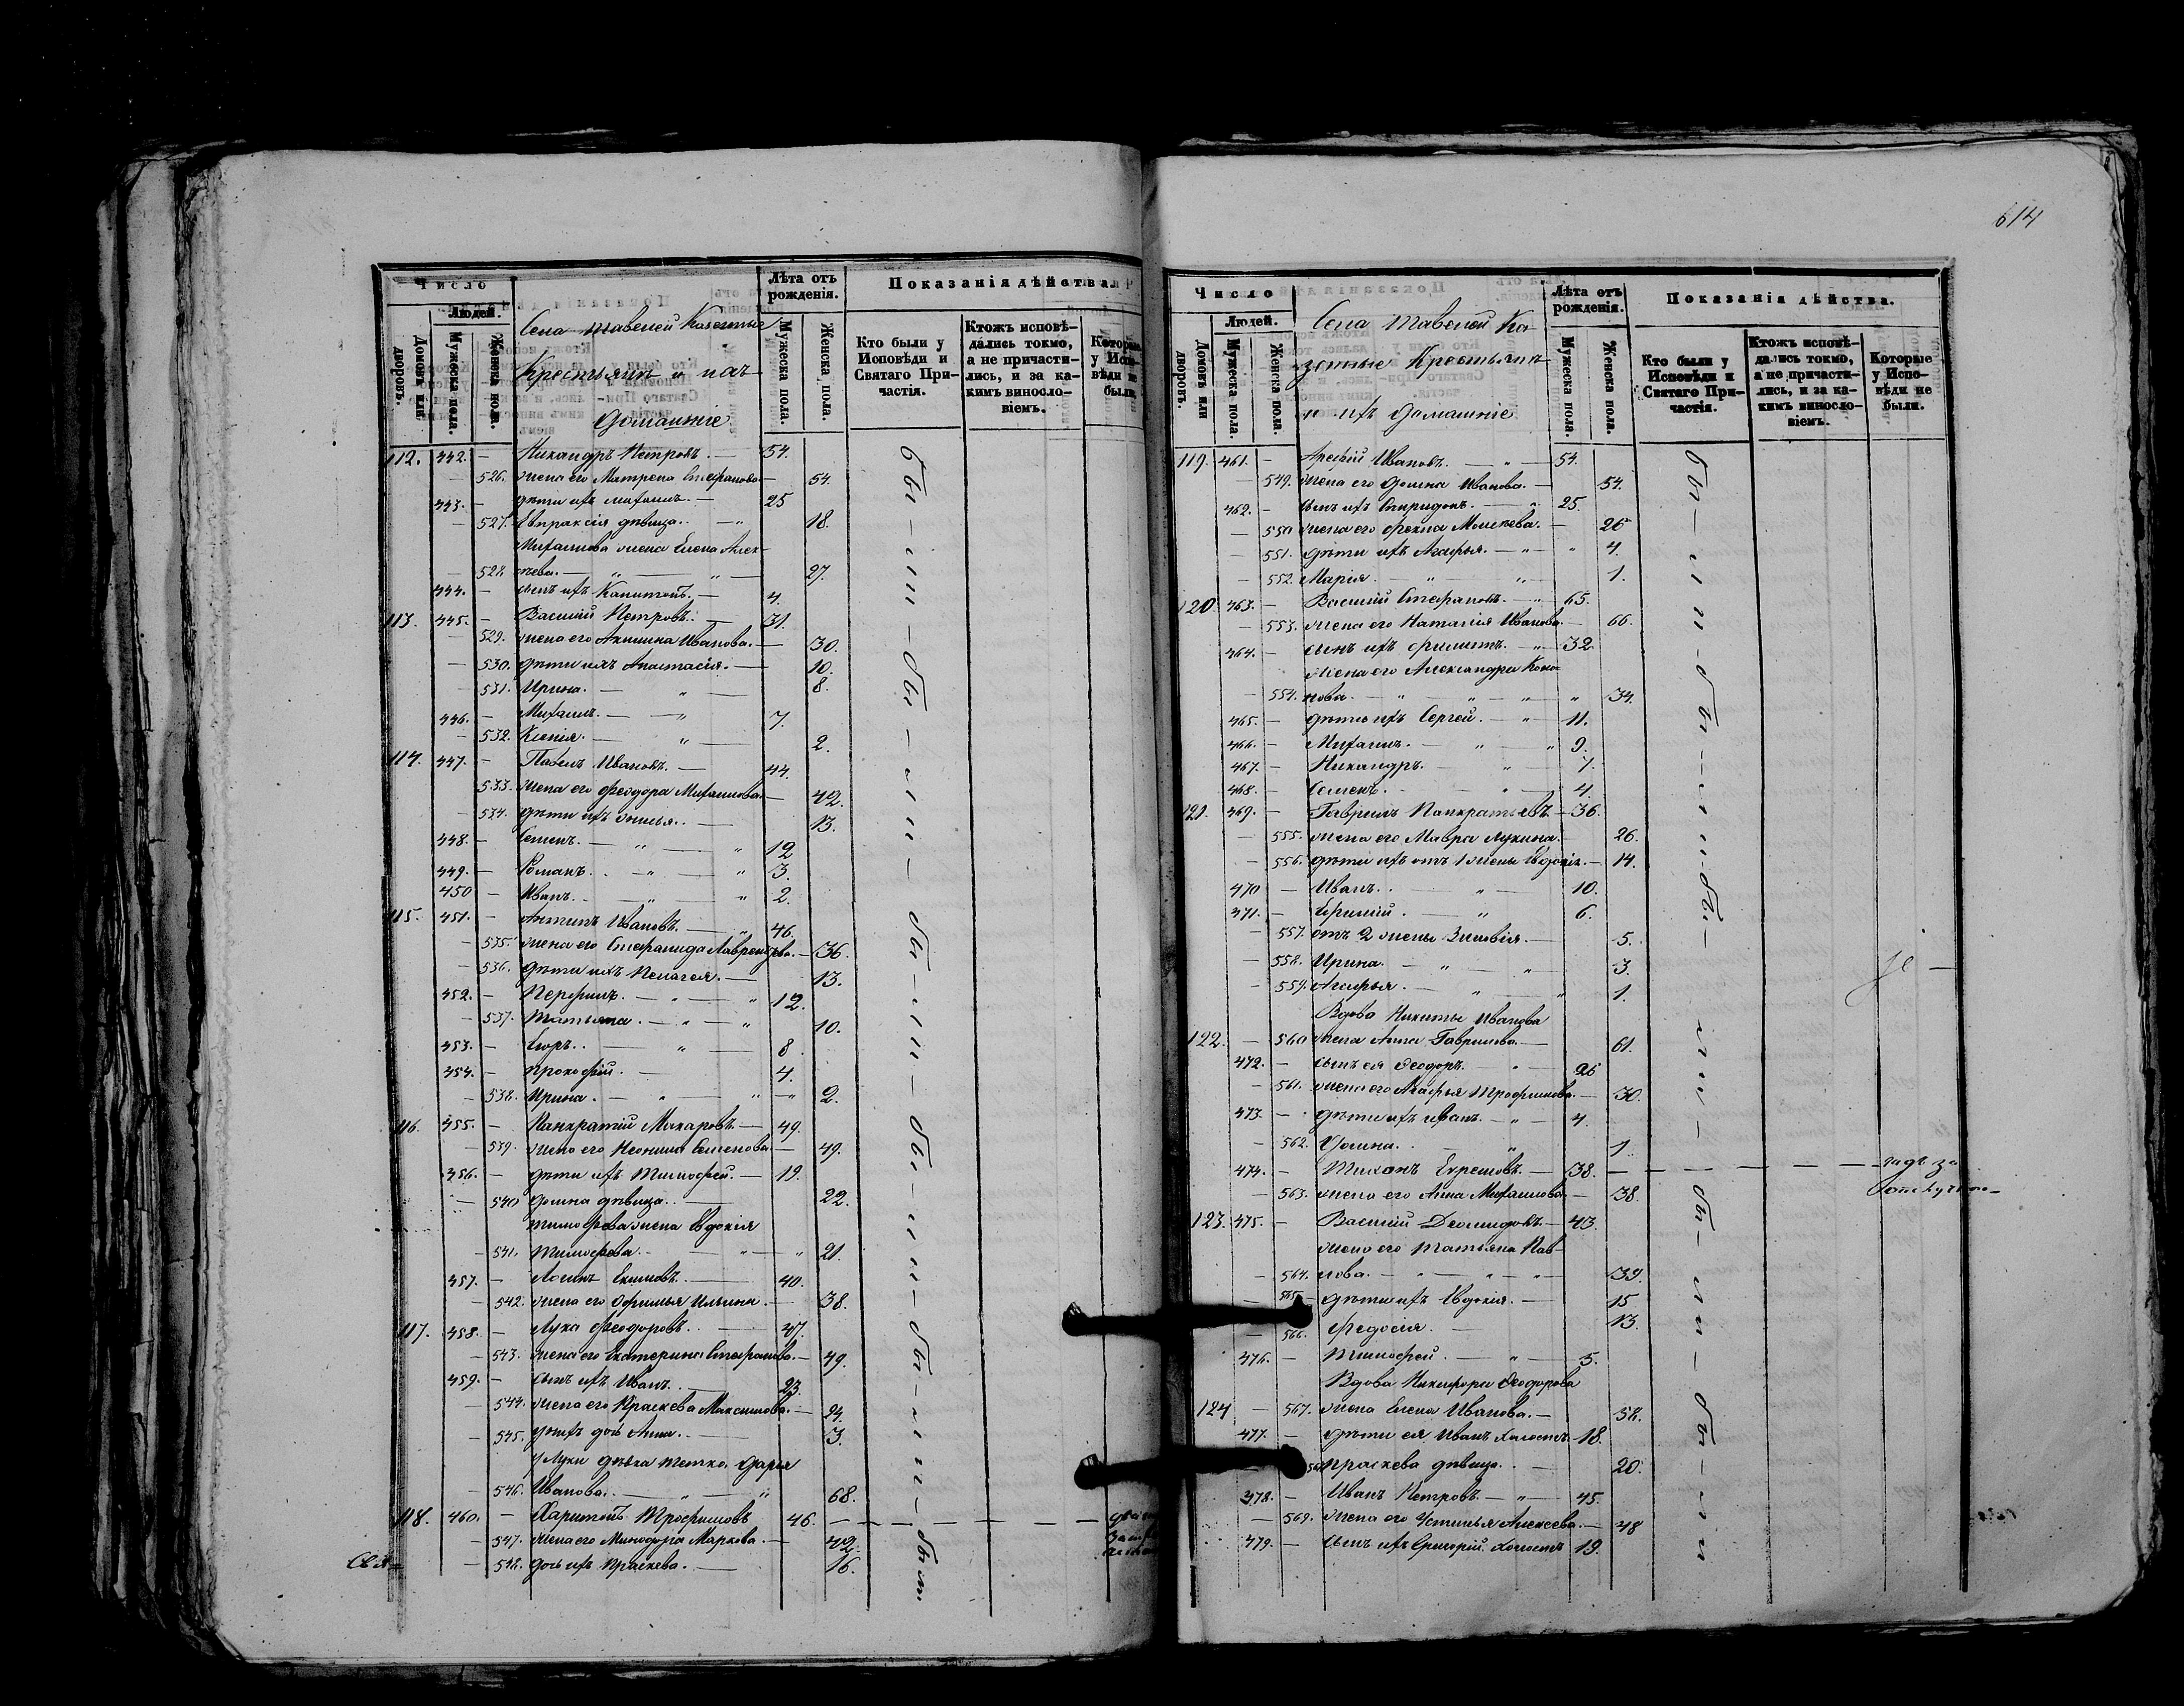 614
Число
Людей.
Домовъ или дворовъ.
Мужеска пола.
Женска пола.
Села Тавеней Казенные
Крестьяне и ихъ
домашніе
Лѣта отъ рожденія.
Мужеска пола.
Женска пола.
Показанія дѣйства
Кто были у Исповѣди и Святаго Причастія.
Ктожъ исповѣдались токмо, а не причастились, и за какимъ винословіемъ.
Которые у Исповѣди не были.
112. 442. — Никандръ Петровъ. — 54.
— 526. жена его Матрена Стефанова — 54.
443. — дѣти ихъ Михаилъ. — 25
— 527. Евпраксія дѣвица. — 18.
Михаилова жена Елена Алек-
— 528. ѣева. — 27.
444. — сынъ ихъ Капитонъ. — 4.
113. 445. — Василій Петровъ. — 31.
— 529. жена его Акилина Иванова. — 30.
— 530. дѣти ихъ Анастасія. — 10.
— 531. Ирина. — 8.
446. — Михаилъ. — 7.
— 532. Ксенія. — 2.
114. 447. — Павелъ Ивановъ. — 44.
533. жена его Феодора Михаилова. — 42.
— 534. дѣти ихъ — 13.
448. — Семенъ. — 12
449. — Романъ. — 3.
450 — Иванъ. — 2.
115. 451. — Антипъ Ивановъ. — 46.
— 535. жена его Стефанида Лаврентьева. — 36.
— 536. дѣти ихъ Пелагея. — 13.
452. — Перфилъ. — 12.
— 537. Татьяна. — 10.
453. — 8.
454. — Прокофій. — 4.
— 538. Ирина. — 2.
116. 455. — Панкратій Макаровъ. — 49.
— 539. жена его Неонила Семенова. — 49.
456. — дѣти ихъ Тимофей. — 19.
— 540 Домна дѣвица. — 22.
Тимофева жена Евдокія
— 541. Тимофева. — 21.
457. — Екимовъ. — 40.
— 542. жена его Офимья Ильина. — 38.
117. 458. — Лука Феодоровъ. — 47.
— 543. жена его Екатерина Стефанова. — 49.
459. — сынъ ихъ Иванъ. — 23.
— 544. жена его Праскева Максимова. — 24.
— 545. у нихъ дочь Анна. — 3.
у Луки дѣвка тетка Дарья
— 546. Иванова. — 68.
118. 460. — Харитонъ Трофимовъ 46.
— 547. жена его Минодора Маркова. — 42.
— 548. дочь ихъ Праскева. — 16.
бы-ли-бы-ли-бы-ли-бы-ли-бы-ли-бы-
Число
Людей.
Домовъ или дворовъ.
Мужеска пола.
Женска пола.
Села Тавеней Ка
зенные Крестьяне
и ихъ домашніе
Лѣта отъ рожденія.
Мужеска пола.
Женска пола.
Показанія дѣйства.
Кто были у Исповѣди и Святаго Причастія.
Ктожъ исповѣдались токмо, а не причастились, и за какимъ винословіемъ.
Которые у Исповѣди не были.
119. 461. — Арефій Ивановъ. — 54.
— 549. жена его Домна Иванова. — 54.
462. — сынъ ихъ Спиридонъ. — 25.
— 550 жена его Фекла Моисеева. — 26
— 551. дѣти ихъ Агафья. — 4.
— 552. Марія. — 1.
120. 463. — Василій Стефановъ. — 65.
— 553. жена его Наталія Иванова. — 66.
464. — сынъ ихъ Филиппъ. — 32.
жена его Александра Коно-
— 554. нова. — 34.
465. — дѣти ихъ Сергей. — 11.
466. — Михаилъ. — 9.
467. — Никандръ. — 7.
468. — Семенъ. — 4.
121. 469. — Гавріилъ Панкратьевъ — 36.
— 555. жена его Мавра Лукина. — 26.
— 556. дѣти ихъ отъ 1 жены Евдокія. — 14.
470 — Иванъ. — 10.
471. — 6.
— 557. отъ 2 жены Зиновія. — 5.
— 558. Ирина. — 3.
— 559. Агафья. — 1.
Вдова Никиты Иванова
122. — 560 жена Анна Гаврилова. — 61.
472. — сынъ ея Феодоръ. — 26
— 561. жена его Агафья Трофимова. — 30.
473. — дѣти ихъ Иванъ. — 4.
— 562. Домна. — 1.
474. — Тихонъ Ефремовъ. — 38.
— 563. жена его Анна Михаилова. — 38.
123. 475. — Василій Деомидовъ. — 43.
жена его Татьяна Пав-
— 564. лова. — 39.
565. — дѣти ихъ Евдокія. — 15
— 566. Федосія. — 13.
476. — Тимофей. — 5.
Вдова Никифора Феодорова
124 — 567. жена Елена Иванова. — 58.
477. — дѣти ея Иванъ холостъ. 18.
Праскева дѣвица. — 20.
478. — Иванъ Петровъ. — 45.
— 569. жена его Устинья Алексеева. — 48
479. — сынъ ихъ Григорій холостъ 19.
бы-ли-бы-ли-бы-ли-бы-ли-бы-ли